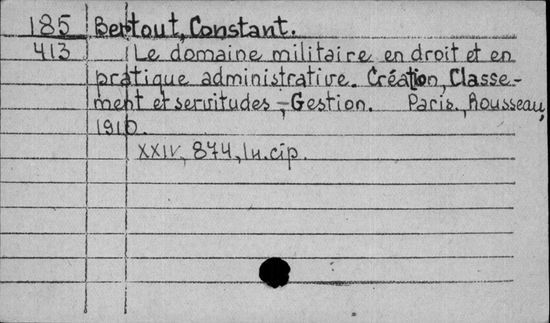 185 Bertout, Constant.
413 Le domaine militaire en droit et en
pratique administrative. Création, Classe-
ment et servitudes,-Gestion. Paris., Rousseau,
1910.
XXIV, 874, 1 н.сiр.